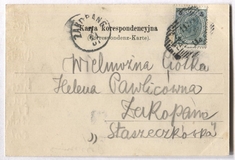 ZAKOPANE
Karta korespondencyjna
(Korrespondenz-Karte)
Wielmożna
Helena Pawlicówna
Zakopane
„Staszeczkówka"